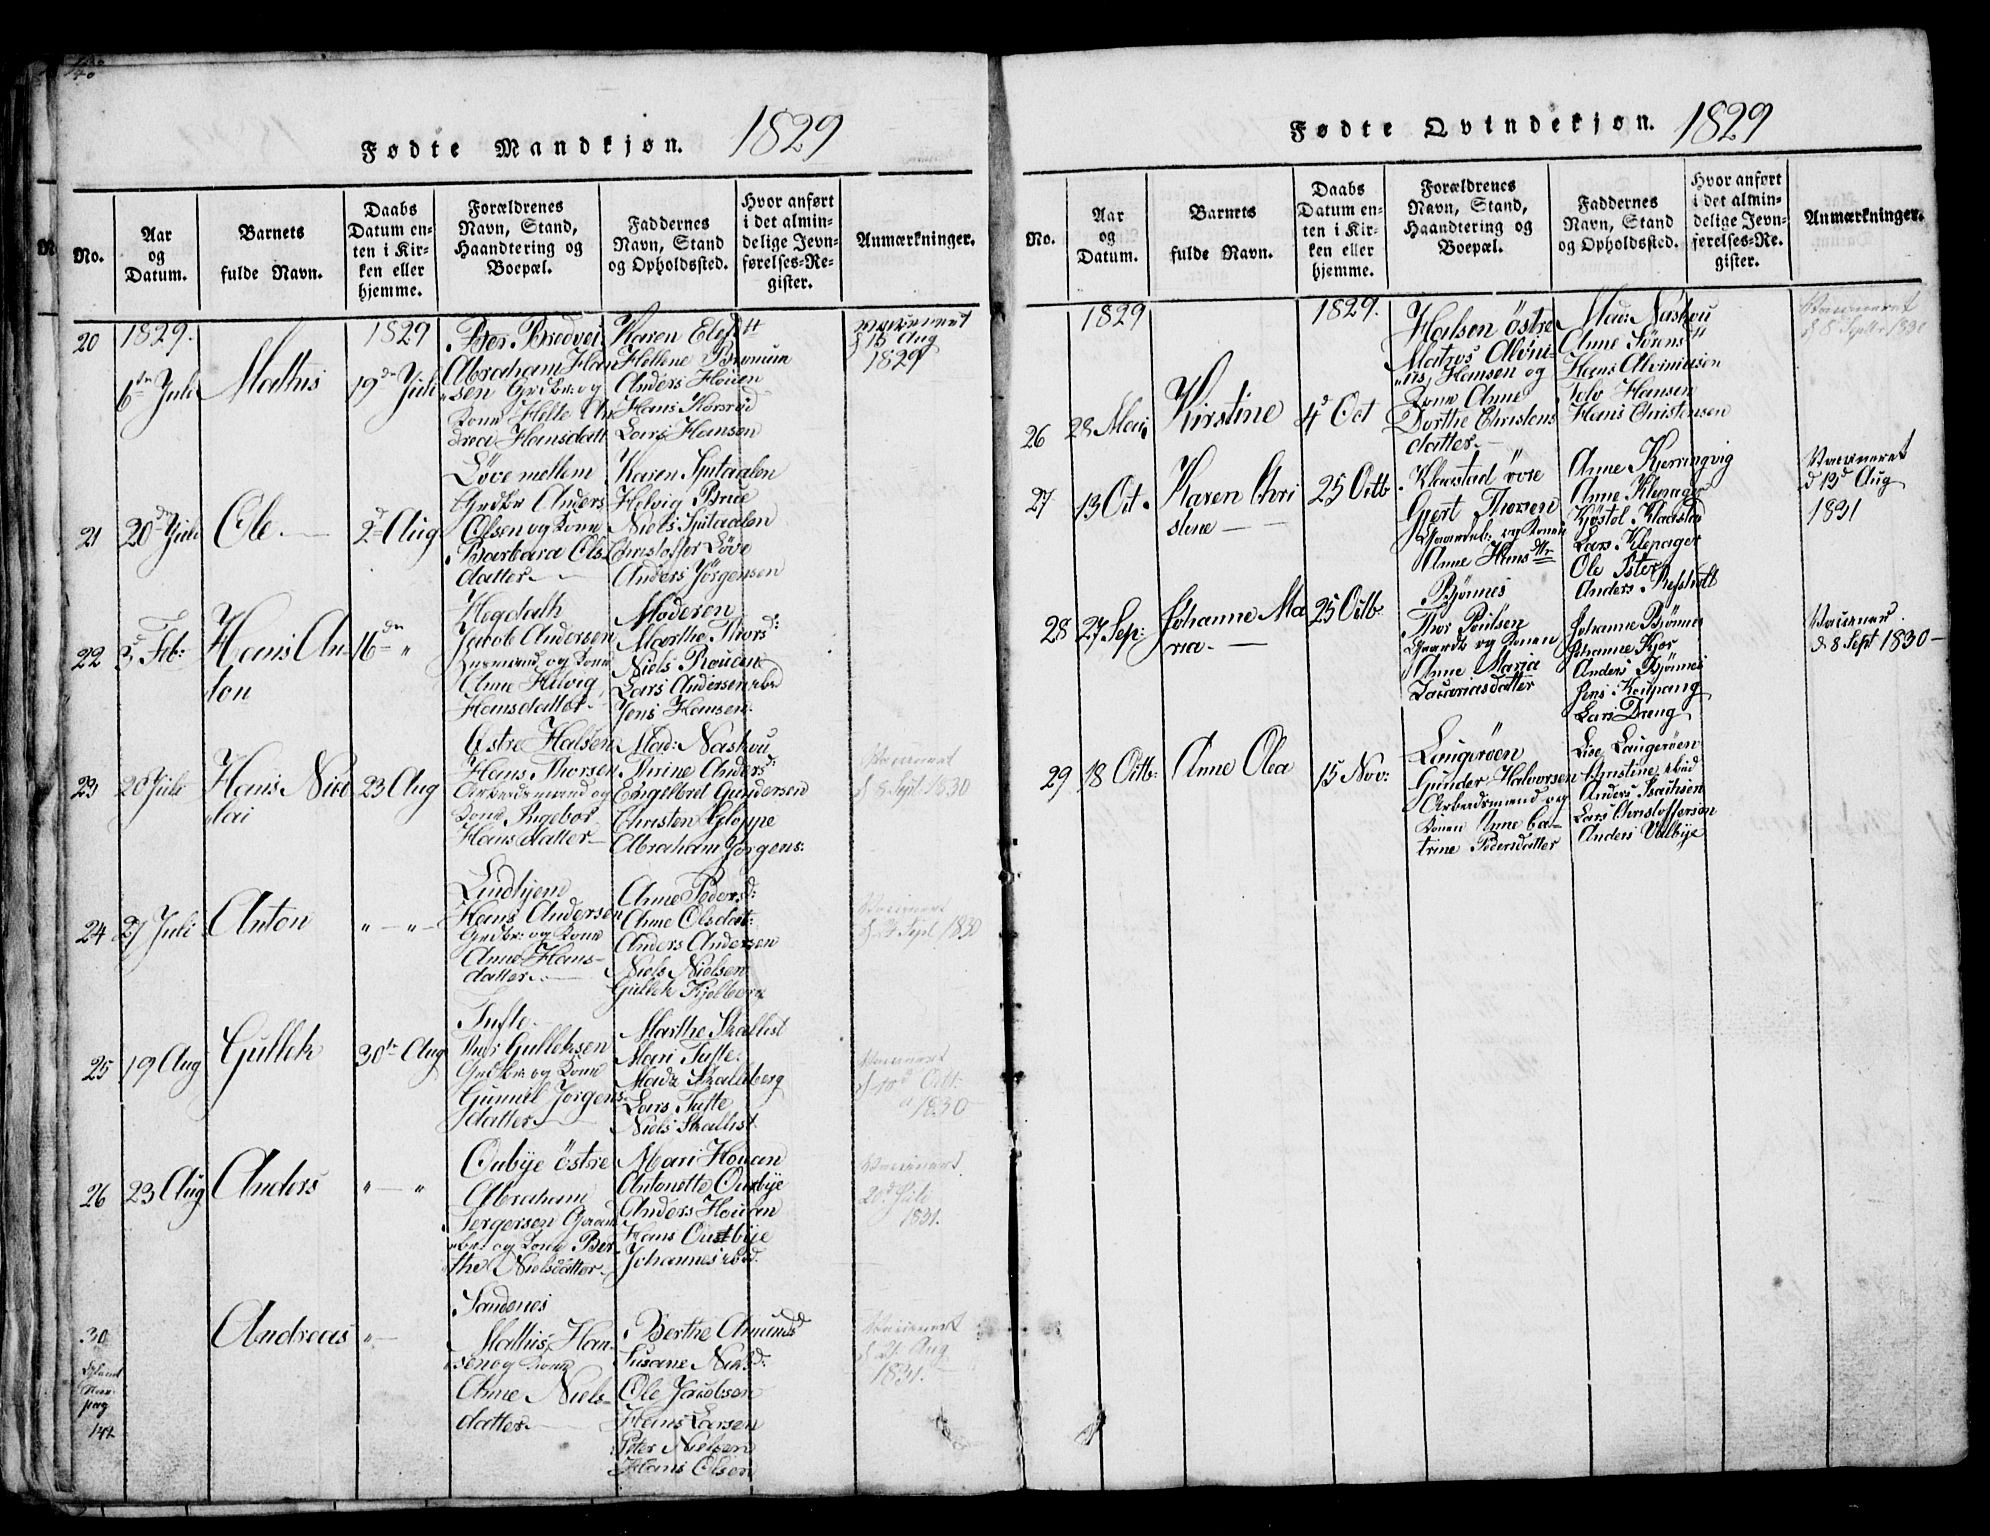 Fødte Mandkjøn. 1829
No.
Aar og Datum.
Barnets fulde Navn.
Daabs Datum enten i Kirken eller hjemme.
Forældrenes Navn, Stand, Haandtering og Boepæl.
Faddernes Navn, Stand og Opholdssted.
Hvor anført i det almindelige Jevnførelses-Register.
Anmærkninger.
20
1829.
6te Juli
Mathis
1829
19de Juli
Peter Bredvei
Abraham Han
sen Grdbr: og
Kone Helle An
drea Hansdatt
Karen
Hellene
Anders Houen
Hans Korsrød
Lars Hansen
Vaccineret
Aug
1829
21
20de Juli
Ole
2d Aug
Løve mellem
Grdbr Anders
Olsen og Kone
Barbara Ols
datter
Karen Spitaalen
Helvig Brue
Niels Spitaalen
Christoffer Løve
Anders Jörgensen
22
5 Feb:
Hans An
ton
16de "
Hegdahl
Jacob Andersen
Huusmand og Kone
Anne Helvig
Hansdatter
Moderen
Marthe Thorsd:
Niels Rouen
Lars Andersen ibd
Jens Hansen
23
20 Juli
Hans Nico
lai
23 Aug
Østre Halsen
Hans Thorsen
Arbeidsmand og
Kone Ingebor
Hansdatter
Mad: Naskou
Thrine Andersd:
Engelbret Gundersen
Christen Gloppe
Abraham Jörgens:
Vaccineret
d 8 Sept. 1830
24
27 Juli
Anton
" — " —
Lindhjem
Hans Andersen
Grdbr: og Kone
Anne Hans-
datter
Anne Pedersd:
Anne Olsdat:
Anders Andersen
Niels Nielsen
Gullek Kjelberg
Vaccineret
Sept 1830
25
19 Aug
Gullek
30te Aug
Tufte
Thor Gulleksen
Grdbr: og Kone
Gunnil Jörgens
datter
Marthe Skallist
Mari Tufte
Mads Skalleberg
Lars Tufte
Niels Skallist
Vaccineret
Octb:
1830
26
23 Aug
Anders
" — "
Oubye östre
Abraham
Jørgersen Gaard
br: og Kone Ber
the Nielsdatter
Mari Houan
Antonette Oubye
Anders Houan
Hans Oustbye
Johannes ibd.
Vaccineret
20d Juli
1831.
30
pag
142
Andreas
" —
Sandenes
Mathis Han
sen og Kone
Anne Niels-
datter
Berthe Amundsd
Susane Nielsd:
Ole Jacobsen
Hans Larsen
Peter Nielsen
Hans Olsen
Vaccineret
Aug
1831.
Fødte Qvindekjøn. 1829
No.
Aar og Datum.
Barnets fulde Navn.
Daabs Datum enten i Kirken eller hjemme.
Forældrenes Navn, Stand, Haandtering og Boepæl.
Faddernes Navn, Stand og Opholdssted.
Hvor anført i det almindelige Jevnførelses-Register.
Anmærkninger.
26
1829
28 Mai
Kirstine
1829.
4d Oct
Halsen östre
Matros Alvini
us Hansen og
Kone Anne
Dorthe Christens
datter
Mad: Naskou
Anne Sörens
Hans Alviniusen
Solv Hansen
Hans Christensen
Vaccineret
d 8 Septbr 1830
27
13 Oct.
Karen Chri
stine
25 Octb
Klaastad övre
Gjert Thorsen
Gaardeb: og Konen
Anne Hansdtr
Anne Kjerringvig
Anne Klepager
Kjöstol Klaastad
Lars Klepager
Ole Istre
Anders Refsholt
Vaccineret
d 13d Aug
1831
28
27 Sep:
Johanne Ma
ria
25 Octb:
Bjönnes
Thor Poulsen
Gaardb og Konen
Anne Maria
Zacariasdatter
Johanne Bjönnes
Johanne Kjær
Anders Bjönnes
Jens Kaupang
Lars Dreng
Vaccineret
d. 8 Sept 1830
29
18 Octb:
Anne Olea
15 Nov:
Laugeröen
Gunder Halvorsen
Arbeidsmand og
Konen Anne Ca-
trine Pedersdatter
Live Laugeröen
Christine ibid
Anders Isachsen
Lars Christoffersen
Anders Valbye